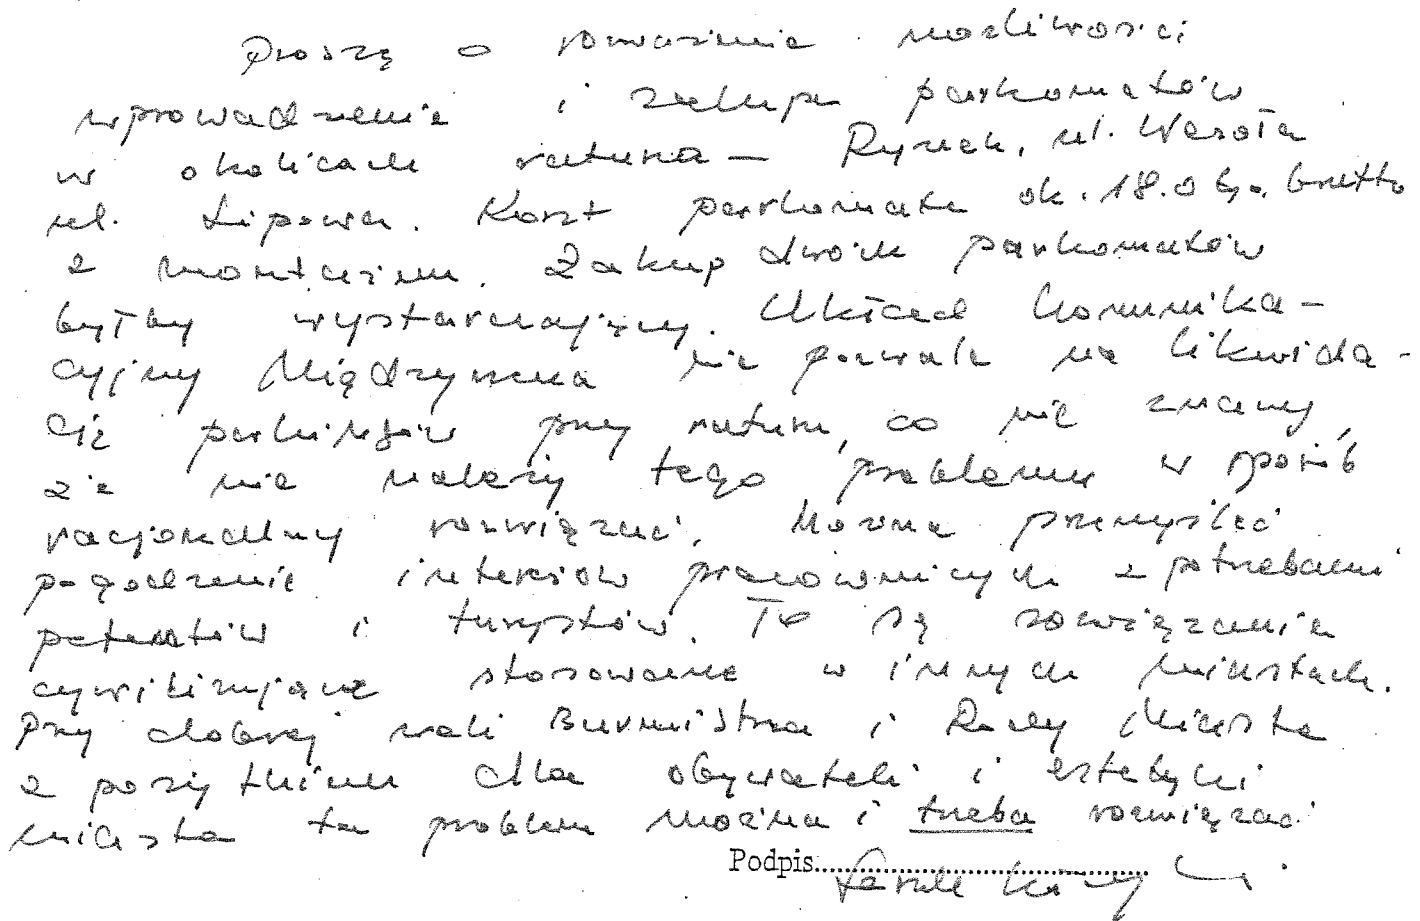 Proszę o rozważenie możliwości
wprowadzenia i zakupu parkomatów
w okolicach ratusza – Rynek, ul. Wesoła
ul. Lipowa. Koszt parkomatu ok. 18.0 tyś. brutto
z montażem. Zakup dwóch parkomatów
byłby wystarczający. Układ komunika-
cyjny Międzyrzecza nie pozwala na likwida-
cję parkingów przy ratuszu, co nie znaczy,
że nie należy tego problemu w sposób
racjonalny rozwiązać. Można przemyśleć
pogodzenie interesów pracowniczych z potrzebami
petentów i turystów. To są rozwiązania
cywilizujące stosowane w innych miastach.
Przy dobrej woli Burmistrza i Rady Miasta
z pożytkiem dla obywateli i estetyki
miasta ten problem można i trzeba rozwiązać
Podpis